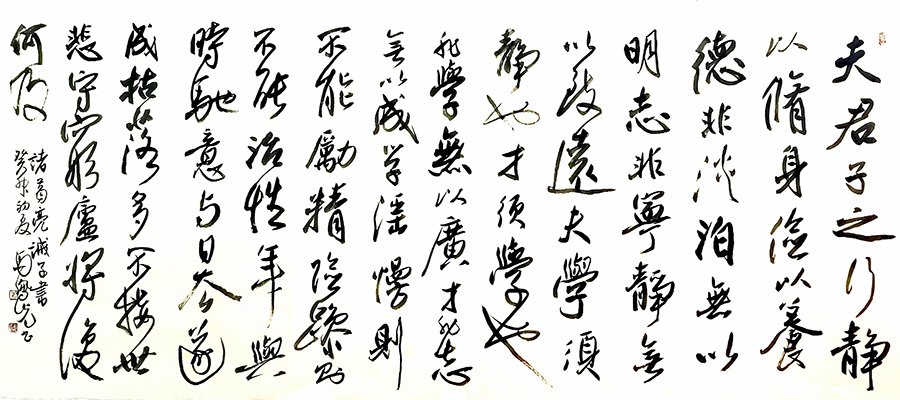 夫君子之行静
以脩身儉以養
德非淡泊無以
明志非寧静無
以致遠夫學須
静也才須學也
非學無以廣才非志
無以成学滛慢則
不能勵精險躁則
不能治性年與
時馳意与日去遂
成枯落多不接世
悲守窮廬將復
何及
諸葛亮誡子書
癸未初夏